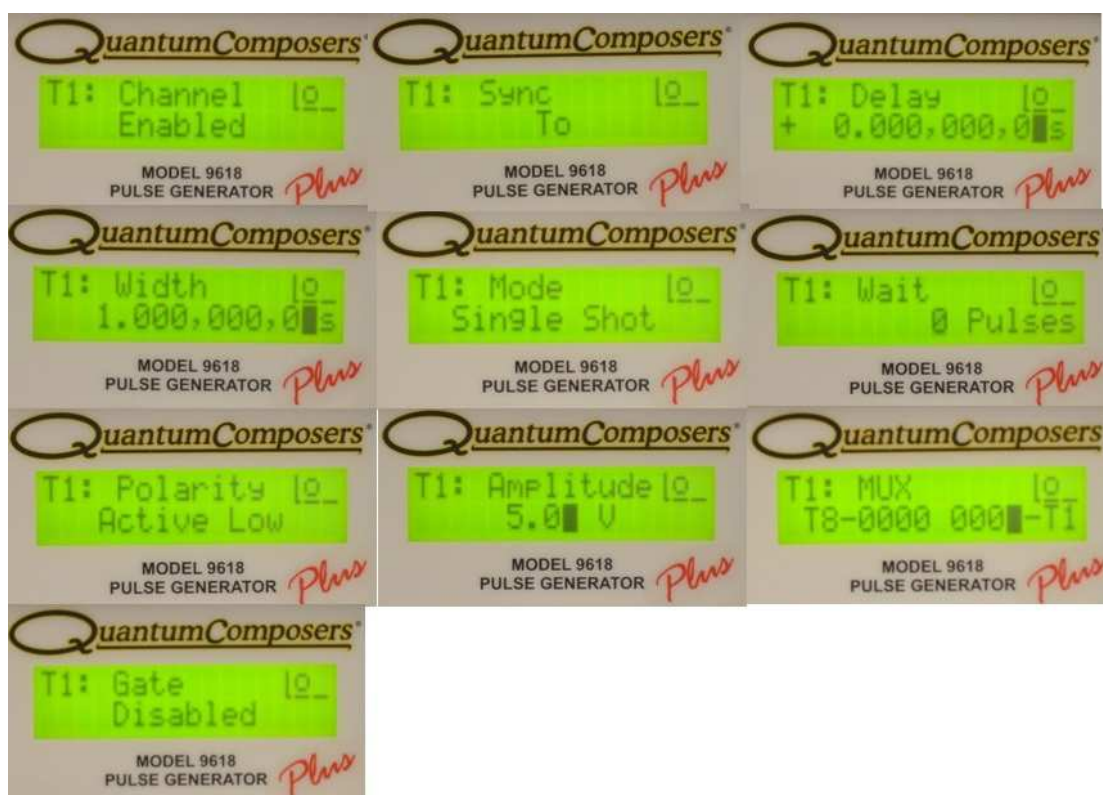 QuantumComposers®
T1: Channel
Enabled
MODEL 9618
PULSE GENERATOR Plus
QuantumComposers®
T1: Sync
To
MODEL 9618
PULSE GENERATOR Plus
QuantumComposers®
T1: Delay
+ 0.000,000,0 s
MODEL 9618
PULSE GENERATOR Plus
QuantumComposers®
T1: Width
1.000,000,0 s
MODEL 9618
PULSE GENERATOR Plus
QuantumComposers®
T1: Mode
Single Shot
MODEL 9618
PULSE GENERATOR Plus
QuantumComposers
T1: Wait
0 Pulses
MODEL 9618
PULSE GENERATOR Plus
QuantumComposers®
T1: Polarity
Active Low
MODEL 9618
PULSE GENERATOR Plus
QuantumComposers®
T1: Amplitude
5.0 V
MODEL 9618
PULSE GENERATOR Plus
QuantumComposers
T1: MUX
T8-0000 000 -T1
MODEL 9618
PULSE GENERATOR Plus
QuantumComposers®
T1: Gate
Disabled
MODEL 9618
PULSE GENERATOR Plus